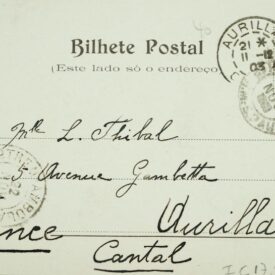 Bilhete Postal
(Este lado só o endereço)
AURILLA
21 *
11-12
03
Mlle L. Thibal
5 Avenue Gambetta
Aurilla
nce
Cantal